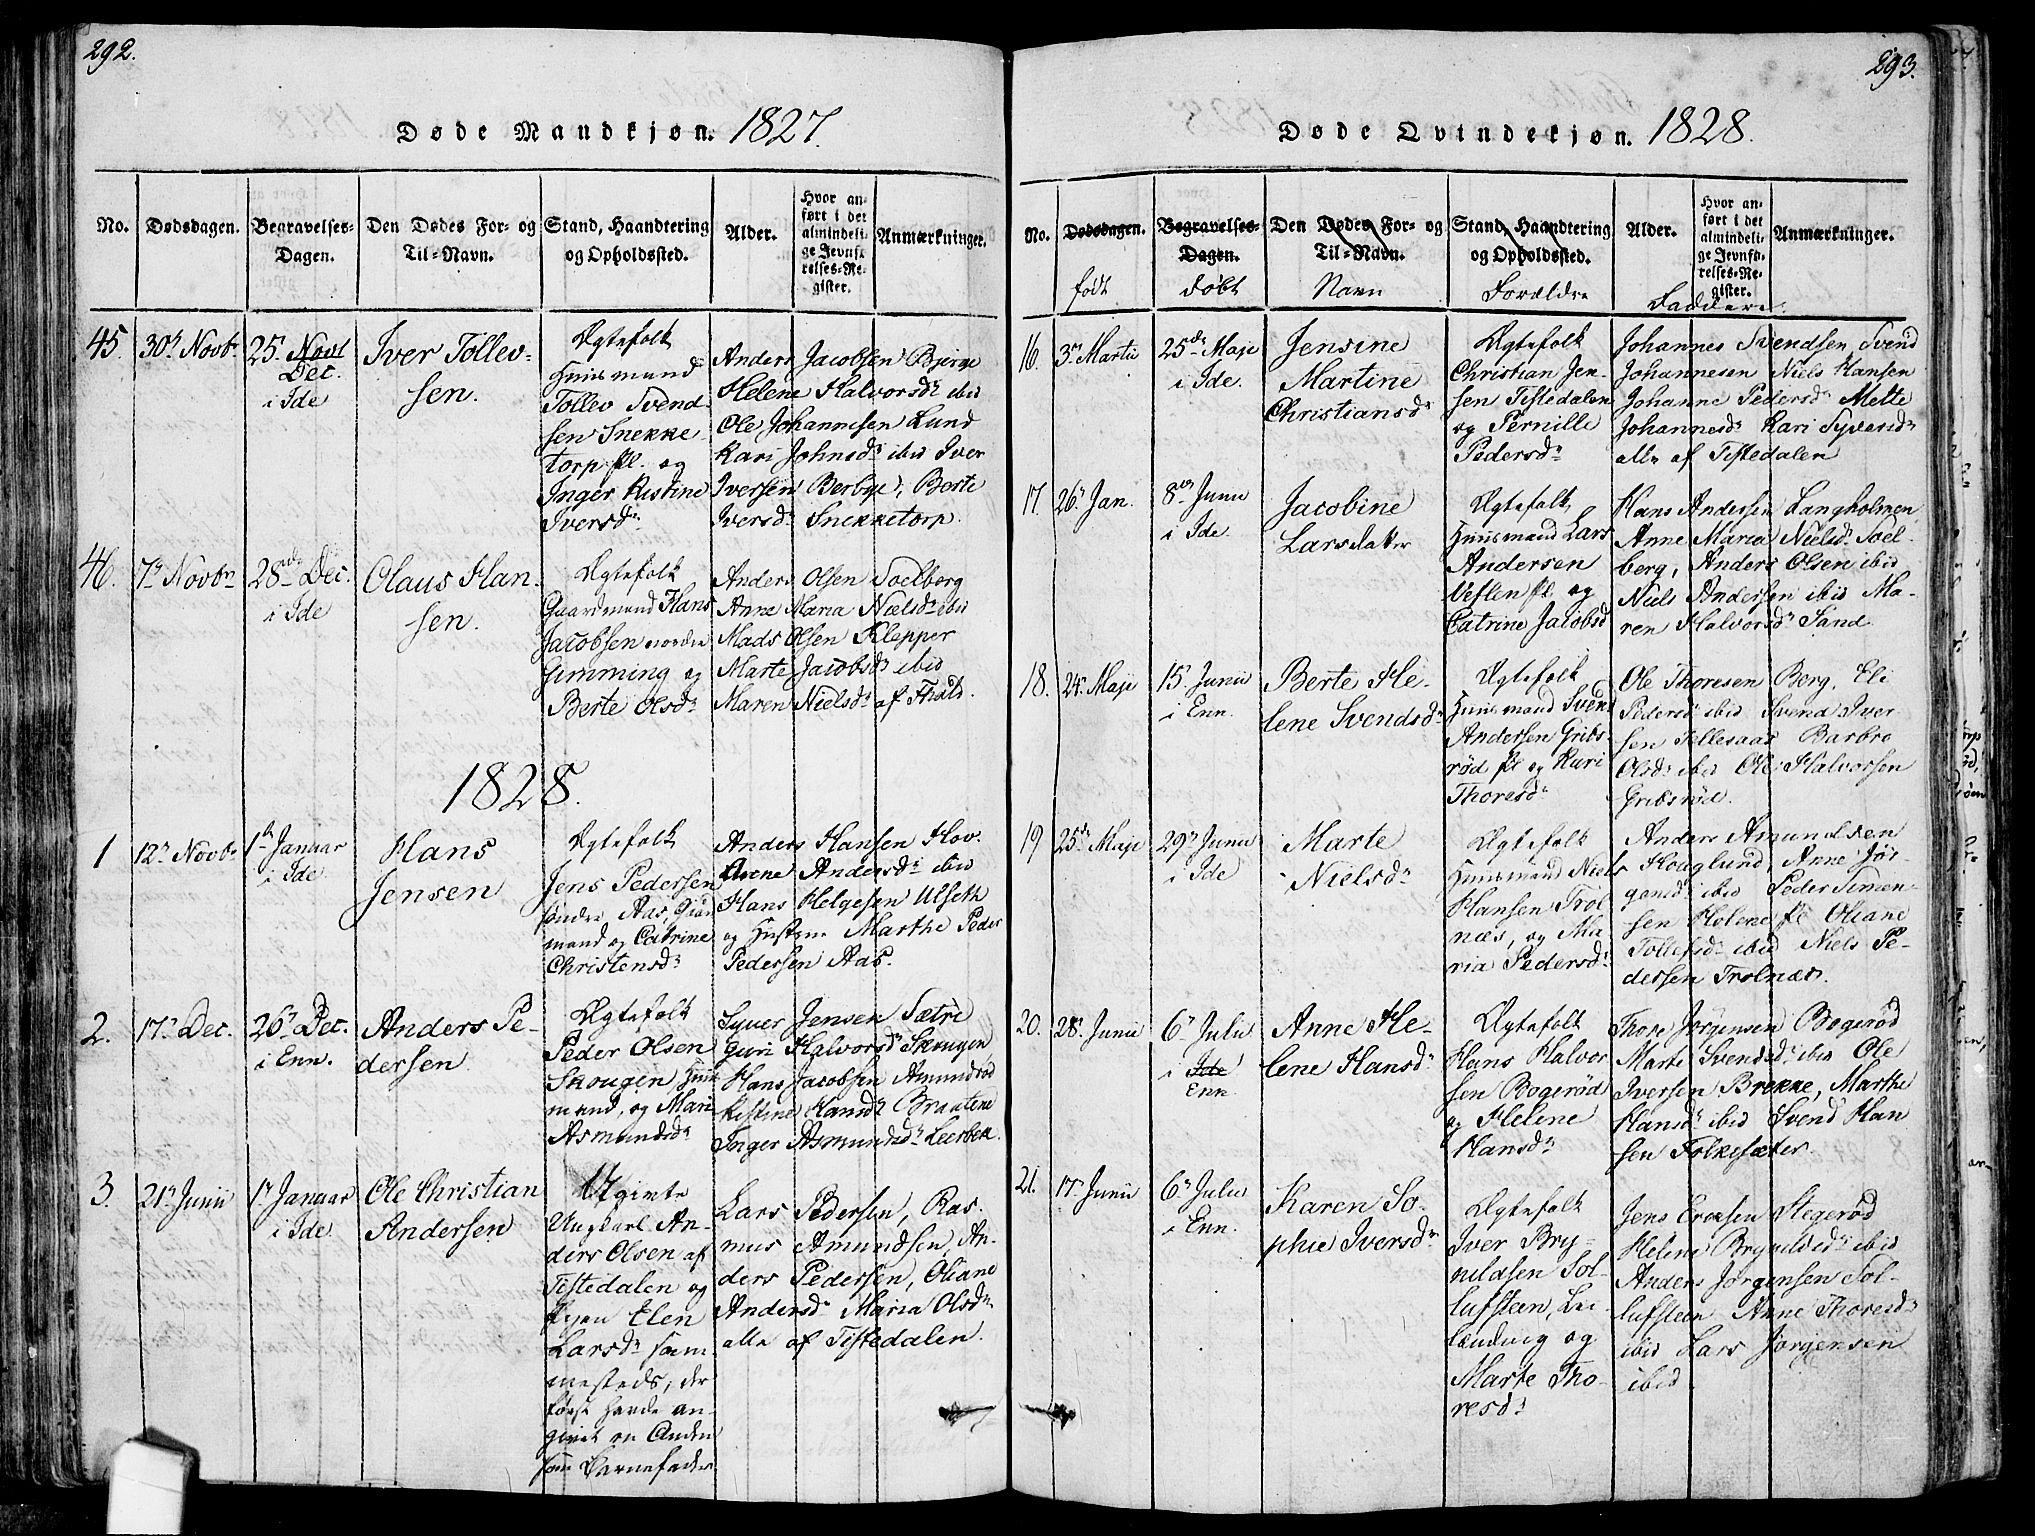 292.
Døde Mandkjøn. 1827.
No.
Dødsdagen.
Begravelses-
Dagen.
Den Dødes For- og
Til-Navn.
Stand, Haandtering
og Opholdssted.
Alder.
Hvor an-
ført i det
almindeli-
ge Jevnfø-
relses-Re-
gister.
Anmærkninger.
45.
30 Novbr
25 Novl
Dec.
i Ide
Iver Tollev-
sen.
Ægtefolk
Huusmand
Tollev Svend-
sen Snekke-
torp pl. og
Inger Kistine
Iversdr
Anders Jacobsen Bjerge
Helene Halvorsdr ibid
Ole Johannesen Lund
Kari Johnsdr ibid Iver
Iversen Berbye, Berte
Iversdr Snekketorp.
46.
7 Novbr
28 Dec.
i Ide
Olaus Han-
sen.
Ægtefolk
Gaardmand Hans
Jacobsen nordre
Gimming og
Berte Olsdr
Anders Olsen Soelberg
Anne Maria Nielsdr ibid
Mads Olsen Klepper
Marte Jacobsdr ibid
Maren Nielsdr af Fhald.
1828.
1
12 Novbr
1 Januar
i Ide
Hans
Jensen
Ægtefolk
Jens Pedersen
søndre Aas, Huus
mand og Catrine
Christensdr
Anders Hansen Hov.
Anne Andersdr ibid
Hans Helgesen Ulseth
og Hustrue Marthe Peder
Pedersen Aas.
2.
17 Dec.
26 Dec.
i Enn.
Anders Pe-
dersen
Ægtefolk
Peder Olsen
Skougen Huus
mand, og Mari
Asmundsdr
Syver Jensen Sætre
Guri Halvorsdr Skougen
Hans Jacobsen Amundrød
Kistine Hansdr Braatene
Inger Asmundsdr Leerbek.
3.
21 Junii
1 Januar
i Ide
Ole Christian
Andersen
Ugivte
Ungkarl An-
ders Olsen af
Tistedalen og
Pigen Elen
Larsdr sam-
mesteds, der
først havde an-
givet en Anden
som Barnefader
Lars Pedersen, Ras-
mus Amundsen, An-
ders Pedersen, Oliane
Andersdr Maria Olsdr
alle af Tistedalen.
293.
Døde Qvindekjøn. 1828.
No.
Dødsdagen.
født
Begravelses-
Dagen.
døbt
Den Dødes For- og
Til-Navn.
Navn
Stand, Haandtering
og Opholdssted.
Forældre
Alder.
Hvor an-
ført i det
almindeli-
ge Jevnfø-
relses-Re-
gister.
Anmærkninger.
Faddere.
16.
3 Martii
25de Maje
i Ide.
Jensine
Martine
Christiansdr
Ægtefolk
Christian Jen-
sen Tistedalen
og Pernille
Pedersdr
Johannes Svendsen Svend
Johannesen Niels Hansen
Johanne Pedersdr Mette
Johannesdr Kari Syversdr
alle af Tistedalen
17.
26 Jan.
8 Junii
i Ide.
Jacobine
Larsdatter
Ægtefolk
Huusmand Lars
Andersen
Veslen pl og
Catrine Jacobsd
Hans Andersen Langholmen
Anne Maria Nielsdr Soel-
berg, Anders Olsen ibid
Niels Andersen ibid Ma-
ren Halvorsdr Sand
18.
24 Maje
15 Junii
i Enn.
Berte He-
lene Svendsdr
Ægtefolk
Huusmand Svend
Andersen Gribs-
rød pl og Kari
Thoresdr
Ole Thoresen Berg, Eli
Pedersdr ibid Svend Iver-
sen Tellesaas Barbro
Olsdr ibid Ole Halvorsen
Gribsrød.
19
25de Maje
29 Junii
i Ide
Marte
Nielsdr
Ægtefolk
Huusmand Niels
Hansen Trol-
næs, og Ma-
ria Pedersdr
Anders Asmundsen
Houglund, Anne Jør-
gensd ibid Peder Simen-
sen Holene pl Oliane
Tollefsdr ibid Niels Pe-
dersen Trolnæs.
20.
28 Junii
6 Julii
i Ide
Enn
Anne He-
lene Hansdr
Ægtefolk
Hans Halvor
sen Bogerød
og Helene
Hansdr
Thore Jørgensen Bogerød
Marte Svendsdr ibid Ole
Iversen Brekke, Marthe
Hansdr ibid Svend Han
sen Folkesæter.
21.
17 Junii
6 Julii
i Enn.
Karen So-
phie Iversdr
Ægtefolk
Iver Bry-
nildsen Sol-
lufsteen, Lei-
lændvig og
Marte Tho-
resdr
Jens Ericksen Stegerød
Helene Brynildsdr ibid
Anders Jørgensen Sol-
lufsteen Anne Thoresdr
ibid Lars Jørgensen
ibid